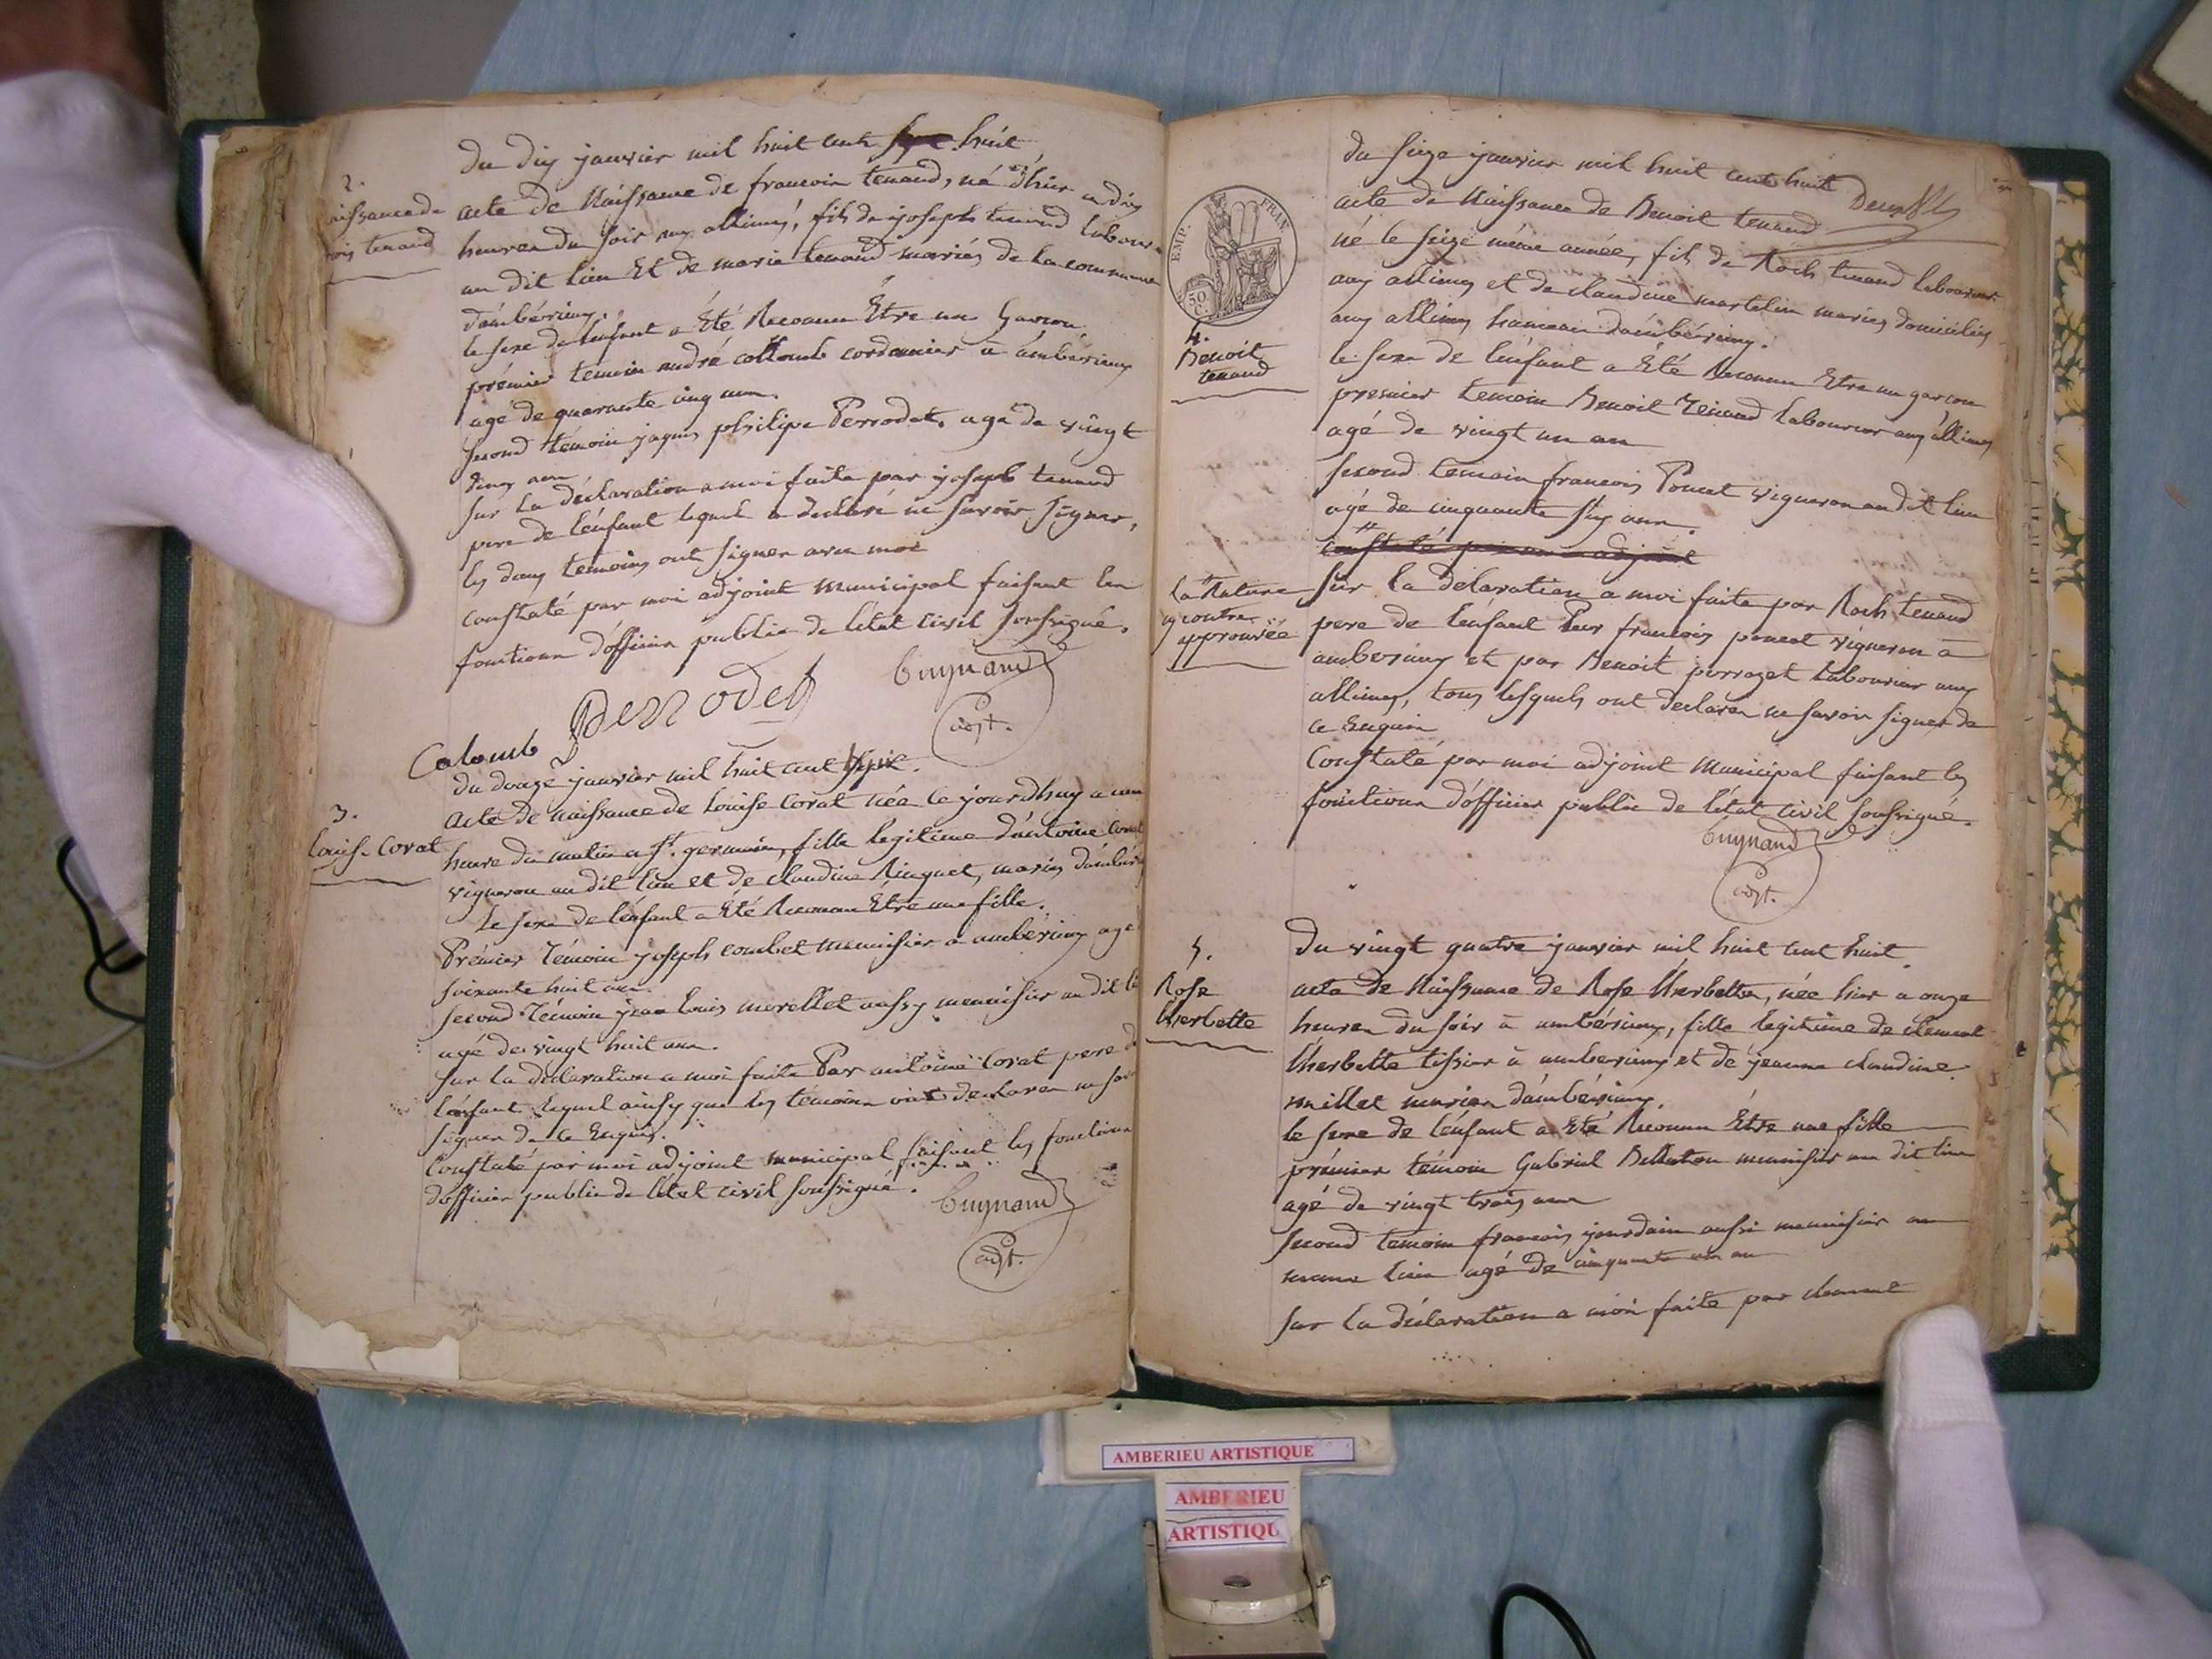 du dix janvier mil huit cent huit
2.
acte de Naissance de francois tenand, né d'hier a dix
heures du soir aux allimes, fils de joseph tenand labour
au dit lieu Et de marie tenand mariés de la commune
d'ambérieux.
le sexe de lenfant a Eté Reconnu Être un Garcon.
prémier temoin andré collomb cordonnier à ambérieux
agé de quarante cinq ans.
second témoin jaques philipe Perrodet, agé de vingt
sur la déclaration a moi faite par joseph tenand
pere de lénfant lequel a declaré ne savoir signer,
les deux temoins ont signer avec moi
constaté par moi adjoint municipal faisant les
fonctions d'officier public de létat civil soussigné.
Colomb Perrodet
adjt.
3.
Louise Corat
du douze janvier mil huit cent
acte de naissance de Louise Corat née ce jourdhuy a une
heure du matin a St. germain, fille legitime d'antoine Corat
vigneron au dit lieu et de claudine Ringuet, mariés
le sexe de lénfant a Eté Reconnu Être une fille.
Prémier Témoin joseph combet menuisier a ambérieux agé
soixante huit ans.
second Témoin jean Louis morellet aussy menuisier au dit
agé de vingt huit ans.
sur la déclaration a moi faite Par antoine Corat pere
lénfant lequel ainsy que les témoins ont declarer ne
signer de ce Enquis.
Constaté par moi adjoint municipal faisant les fonctions
d'officier public de létat civil soussigné.
adjt.
EMP. FRAN.
50 C.
4.
Benoit
tenand
du seize janvier mil huit cent huit
acte de Naissance de Benoit tenand
né le seize même année, fils de Roch tenand laboureur
aux allimes et de claudine martelin mariés domiciliés
aux allimes hameau d'ambérieux.
le sexe de lénfant a Eté Reconnu Etre un garcon
premier temoin Benoit Tenand laboureur aux allimes
agé de vingt un an
second temoin francois Poncet vigneron au dit lieu
agé de cinquante six ans.
constaté par adjoint
la Rature
cy contre
approuvée
sur la délaration a moi faite par Roch tenand
pere de lénfant francois poncet vigneron à
amberieux et par Benoit laboureur aux
allimes, tous lesquels ont declarer ne savoir signer de
ce Enquis
Constaté par moi adjoint Municipal faisant les
fonctions d'officier public de létat civil soussigné.
adjt.
5.
Rose
Lherbette
du vingt quatre janvier mil huit cent huit.
acte de Naissance de Rose Lherbette, née hier a onze
heures du soir à ambérieux, fille legitime de clement
lherbette tissier à amberieux et de jeanne claudine
millet mariés d'ambérieux.
le sexe de lénfant a Eté Reconnu Être une fille
prémier témoin Gabriel menuisier au dit lieu
agé de vingt trois ans
second temoin francois jourdain aussi menuisier au
meme lieu agé de cinquante un an
sur la déclaration a moi faite par clement
AMBERIEU ARTISTIQUE
AMBERIEU
ARTISTIQU